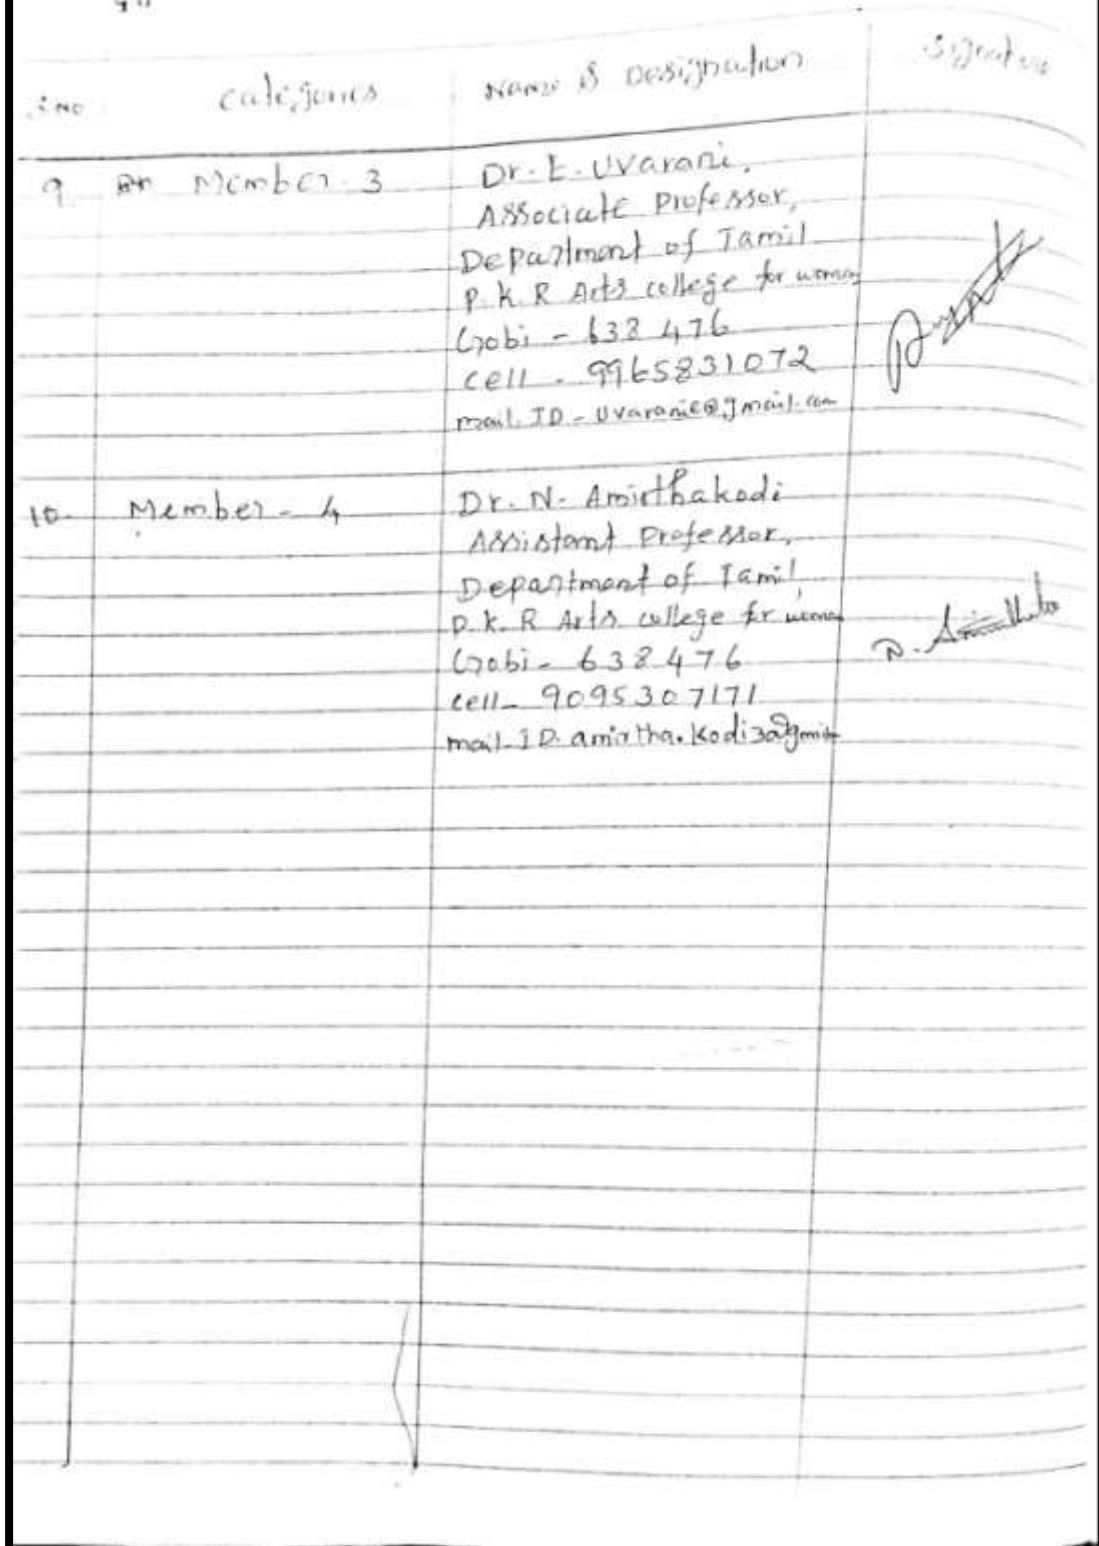 S.No Categories Name & Designation Signature
9. Member-3 Dr. E. Uvarani,
Associate Professor,
Department of Tamil
P.K.R Arts college for women
Gobi - 638 476
cell - 9965831072
mail. ID - uvaranie@gmail.com
10. Member - 4 Dr. N. Amirthakodi
Assistant Professor,
Department of Tamil,
P.K.R Arts college for women
Gobi - 638 476
cell - 9095307171
mail-ID